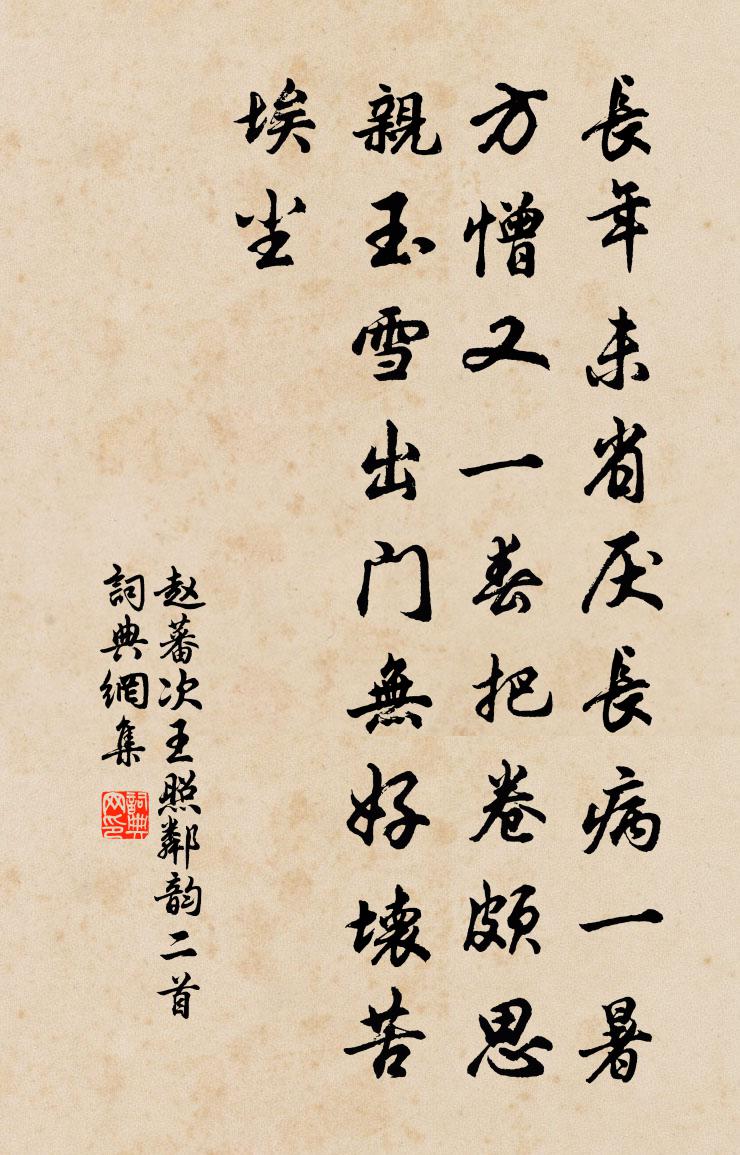 長年未省厌長病一暑
方憎又一春把卷頗思
親玉雪出门無好壊苦
埃尘
赵蕃次王照鄰韵二首
詞典網集
詞典网印